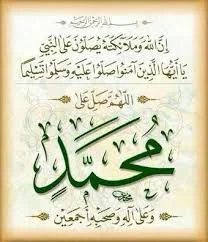 بسم الله الرحمن الرحيم
إن الله وملائكته يصلون على النبي
يا أيها الذين آمنوا صلوا عليه وسلموا تسليما
اللهم صل على
محمد
وعلى آله وصحبه أجمعين